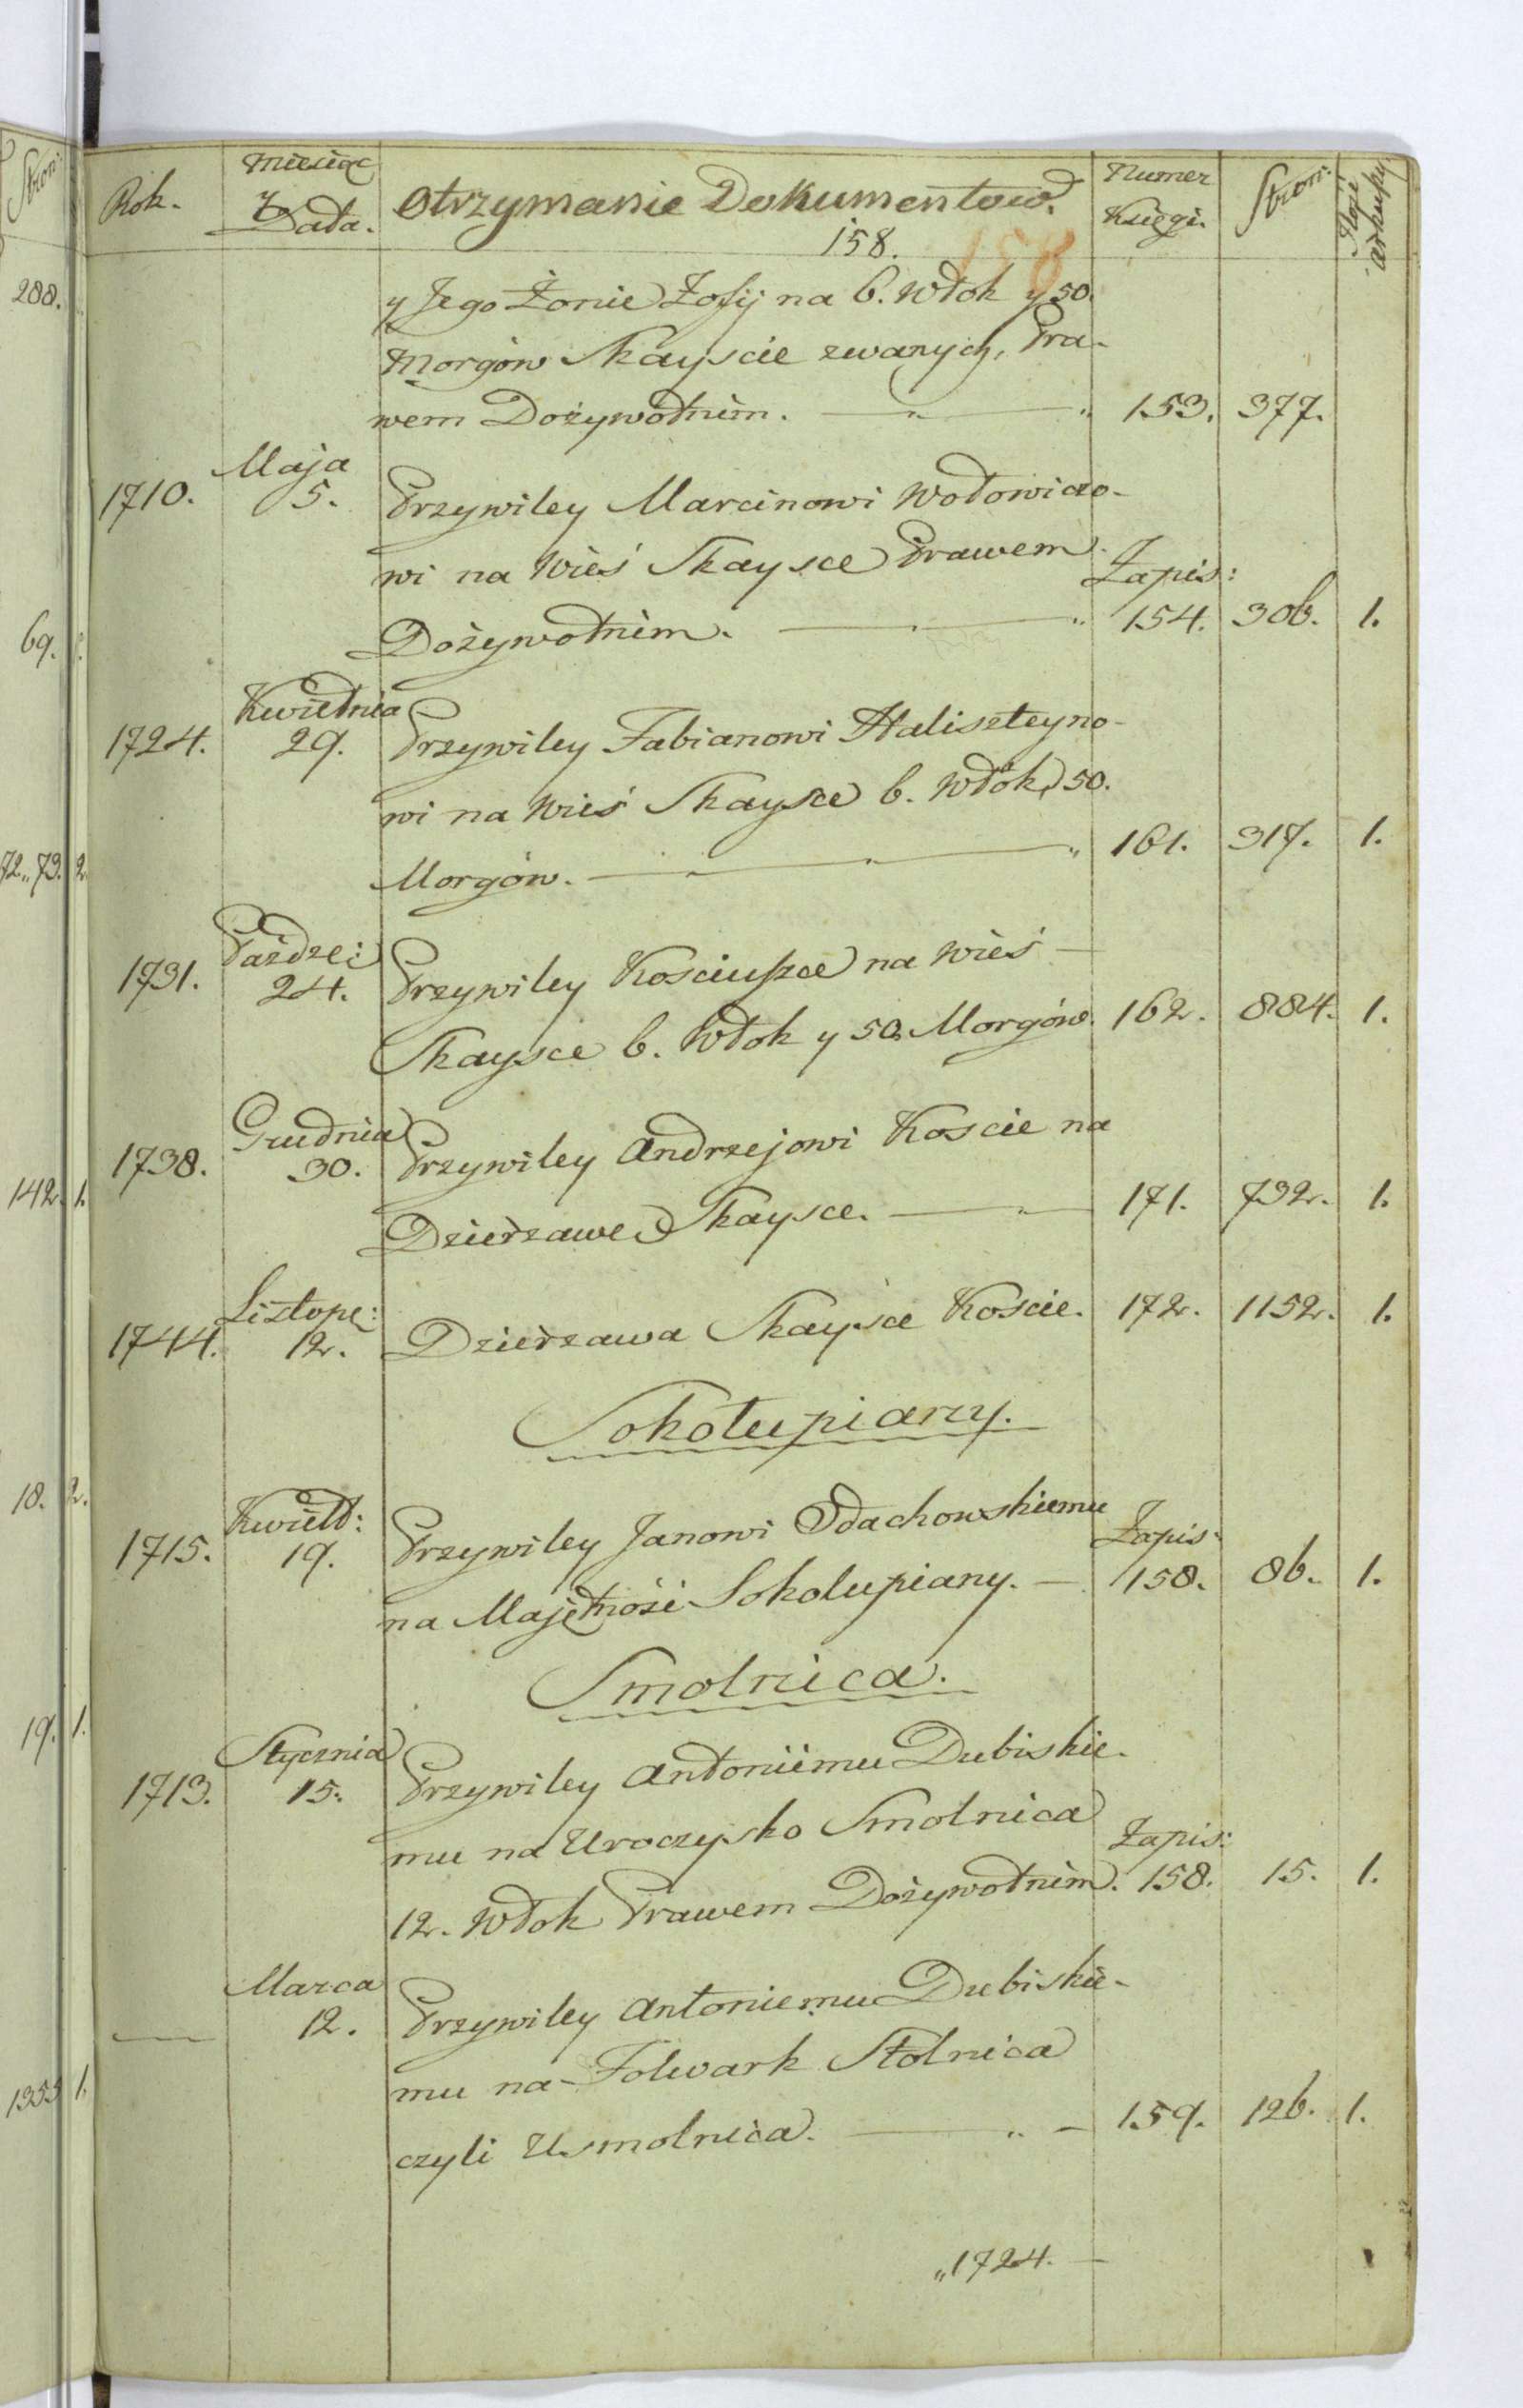 Stron:
288.
69.
72„73. 2.
142. 1.
18. 2.
19. 1.
1355 1.
Rok. Miesiąc y Data. Otrzymanie Dokumentow. Numer Księgi. Stron: Ilość arkuszy
158. 158
y Jego Żonie Zofij na 6. Włok y 50.
Morgów Skayscie zwanych, Pra-
wem Dożywotnim. 153. 377.
Maja
1710. 5. Przywiley Marcinowi Wołowiczo-
wi na Wieś Skaysce Prawem Zapis:
Dożywotnim. 154. 306. 1.
Kwietnia
1724. 29. Przywiley Fabianowi Haliszteyno-
wi na Wieś Skaysce 6. Włok, 50.
Morgów. 161. 317. 1.
Paźdze:
1731. 24. Przywiley Kosciuszce na Wieś
Skaysce 6. Włok y 50. Morgów. 162. 884. 1.
Grudnia
1738. 30. Przywiley Andrzejowi Koscie na
Dzierżawe Skaysce. 171. 732. 1.
Listopa:
1744. 12. Dzierżawa Skaysce Koscie. 172. 1152. 1.
Sokołupiany.
Kwiet:
1715. 19. Przywiley Janowi Odachowskiemu Zapis:
na Majętność Sokolupiany. 158. 86. 1.
Smolnica.
Stycznia
1713. 15. Przywiley Antoniemu Dubiskie-
mu na Uroczysko Smolnica Zapis:
12. Włok Prawem Dożywotnim. 158. 15. 1.
Marca
— 12. Przywiley Antoniemu Dubiskie-
mu na Folwark Stolnica
czyli Usmolnica. 159. 126. 1.
„1724.